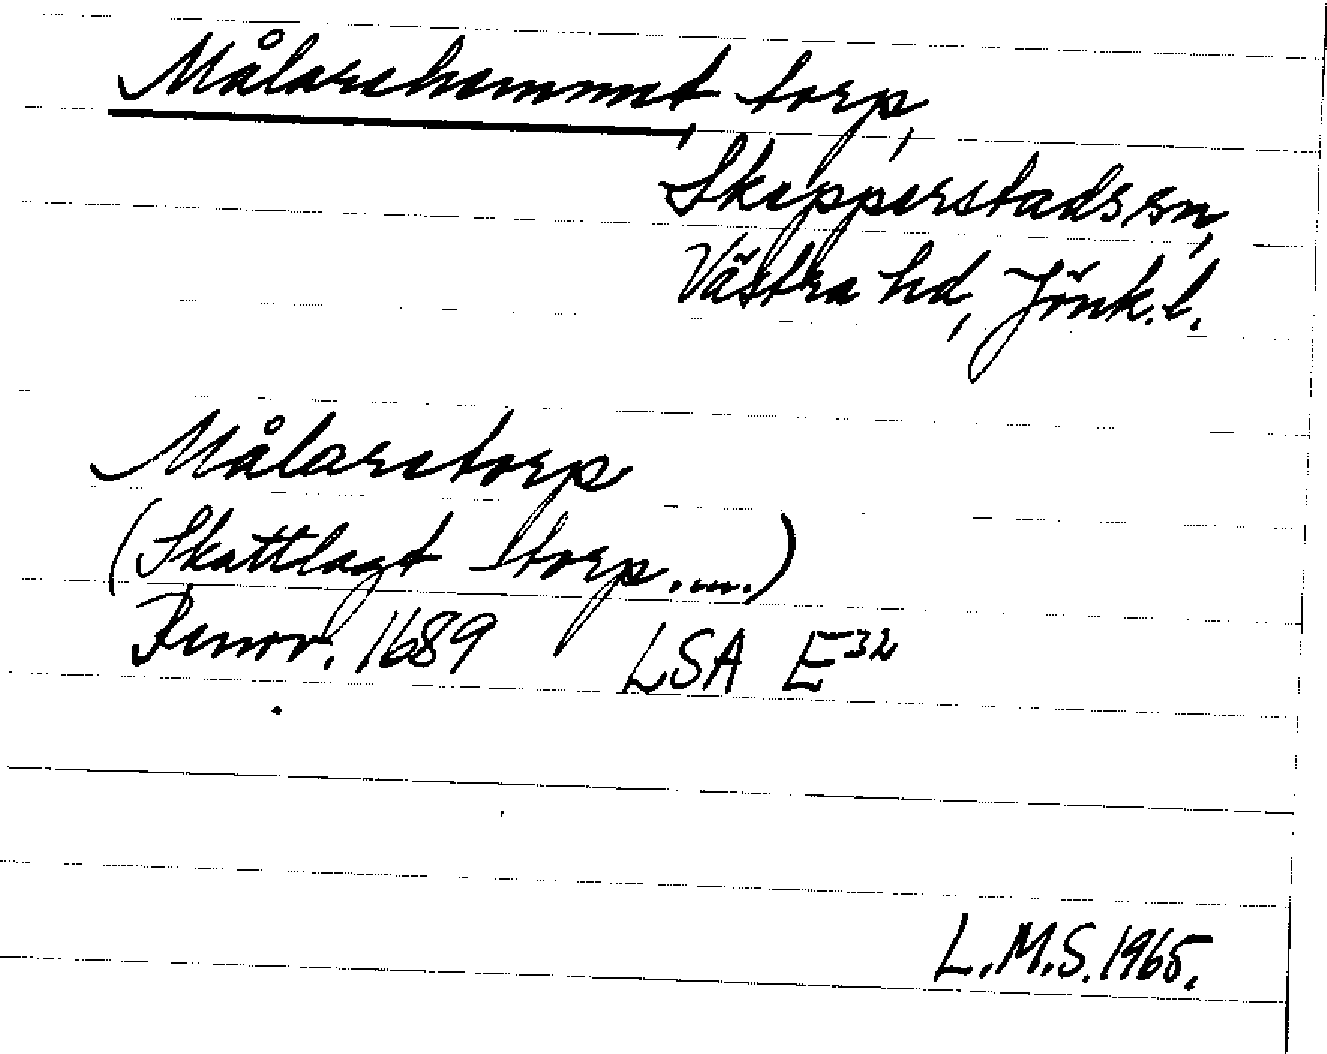 Målarehemmet, torp,
Skepperstads sn,
Västra hd, Jönk.l.
Målaretorp
(Skattlagt torp.....)
Renov. 1689 LSA E32
L.M.S. 1965.